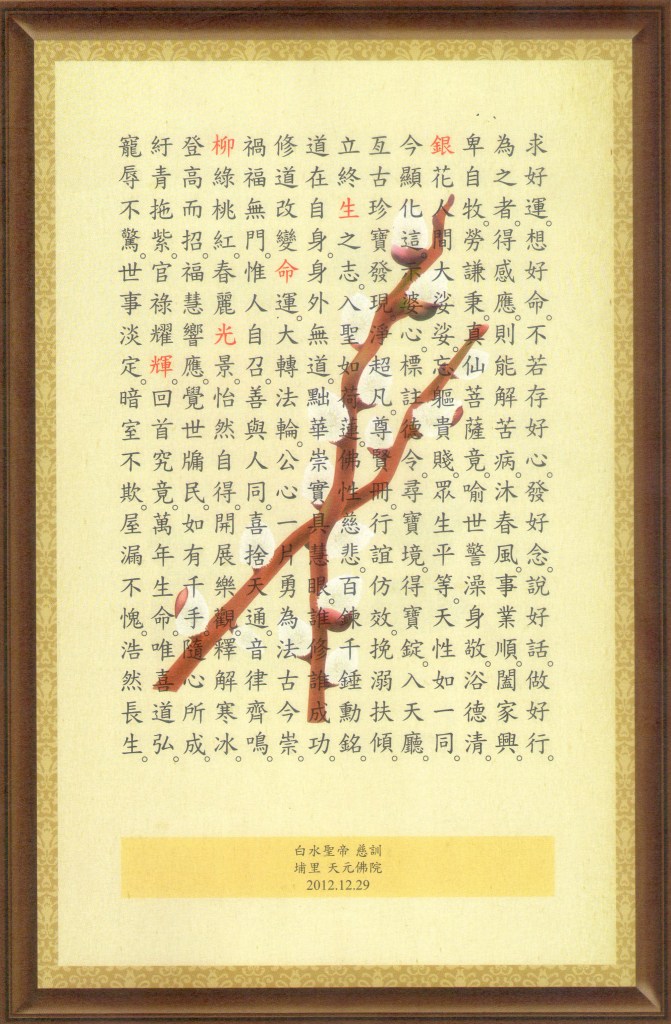 求好運。想好命。不若存好心。發好念。說好話。做好行。
為之者。得感應。則能解苦病。沐春風。事業順。闔家興。
卑自牧。勞謙秉。真仙菩薩竟。喻世警。澡身敬。浴德清。
銀花人間大娑娑。忘軀貴賤。眾生平等。天性如一同。
今顯化這示婆心。標註德令。尋寶境。得寶錠。入天廳。
亙古珍寶發現淨。超凡。尊賢冊。行誼仿效。挽溺扶傾。
立終生之志。入聖如荷蓮。佛性慈悲。百鍊千錘勳銘。
道在自身。身外無道。點華崇實具慧眼。誰修誰成功。
修道改變命運。大轉法輪。公心一片勇為法古今崇。
禍福無門。惟人自召。善與人同。喜捨天通。音律齊鳴。
柳綠桃紅。春麗光景怡然自得。開展樂觀。釋解寒冰。
登高而招。福慧響應。覺世牖民。如有千手。隨心所成。
紆青拖紫。官祿耀輝。回首究竟。萬年生命。唯喜道弘。
寵辱不驚。世事淡定。暗室不欺。屋漏不愧。浩然長生。
白水聖帝 慈訓
埔里 天元佛院
2012.12.29